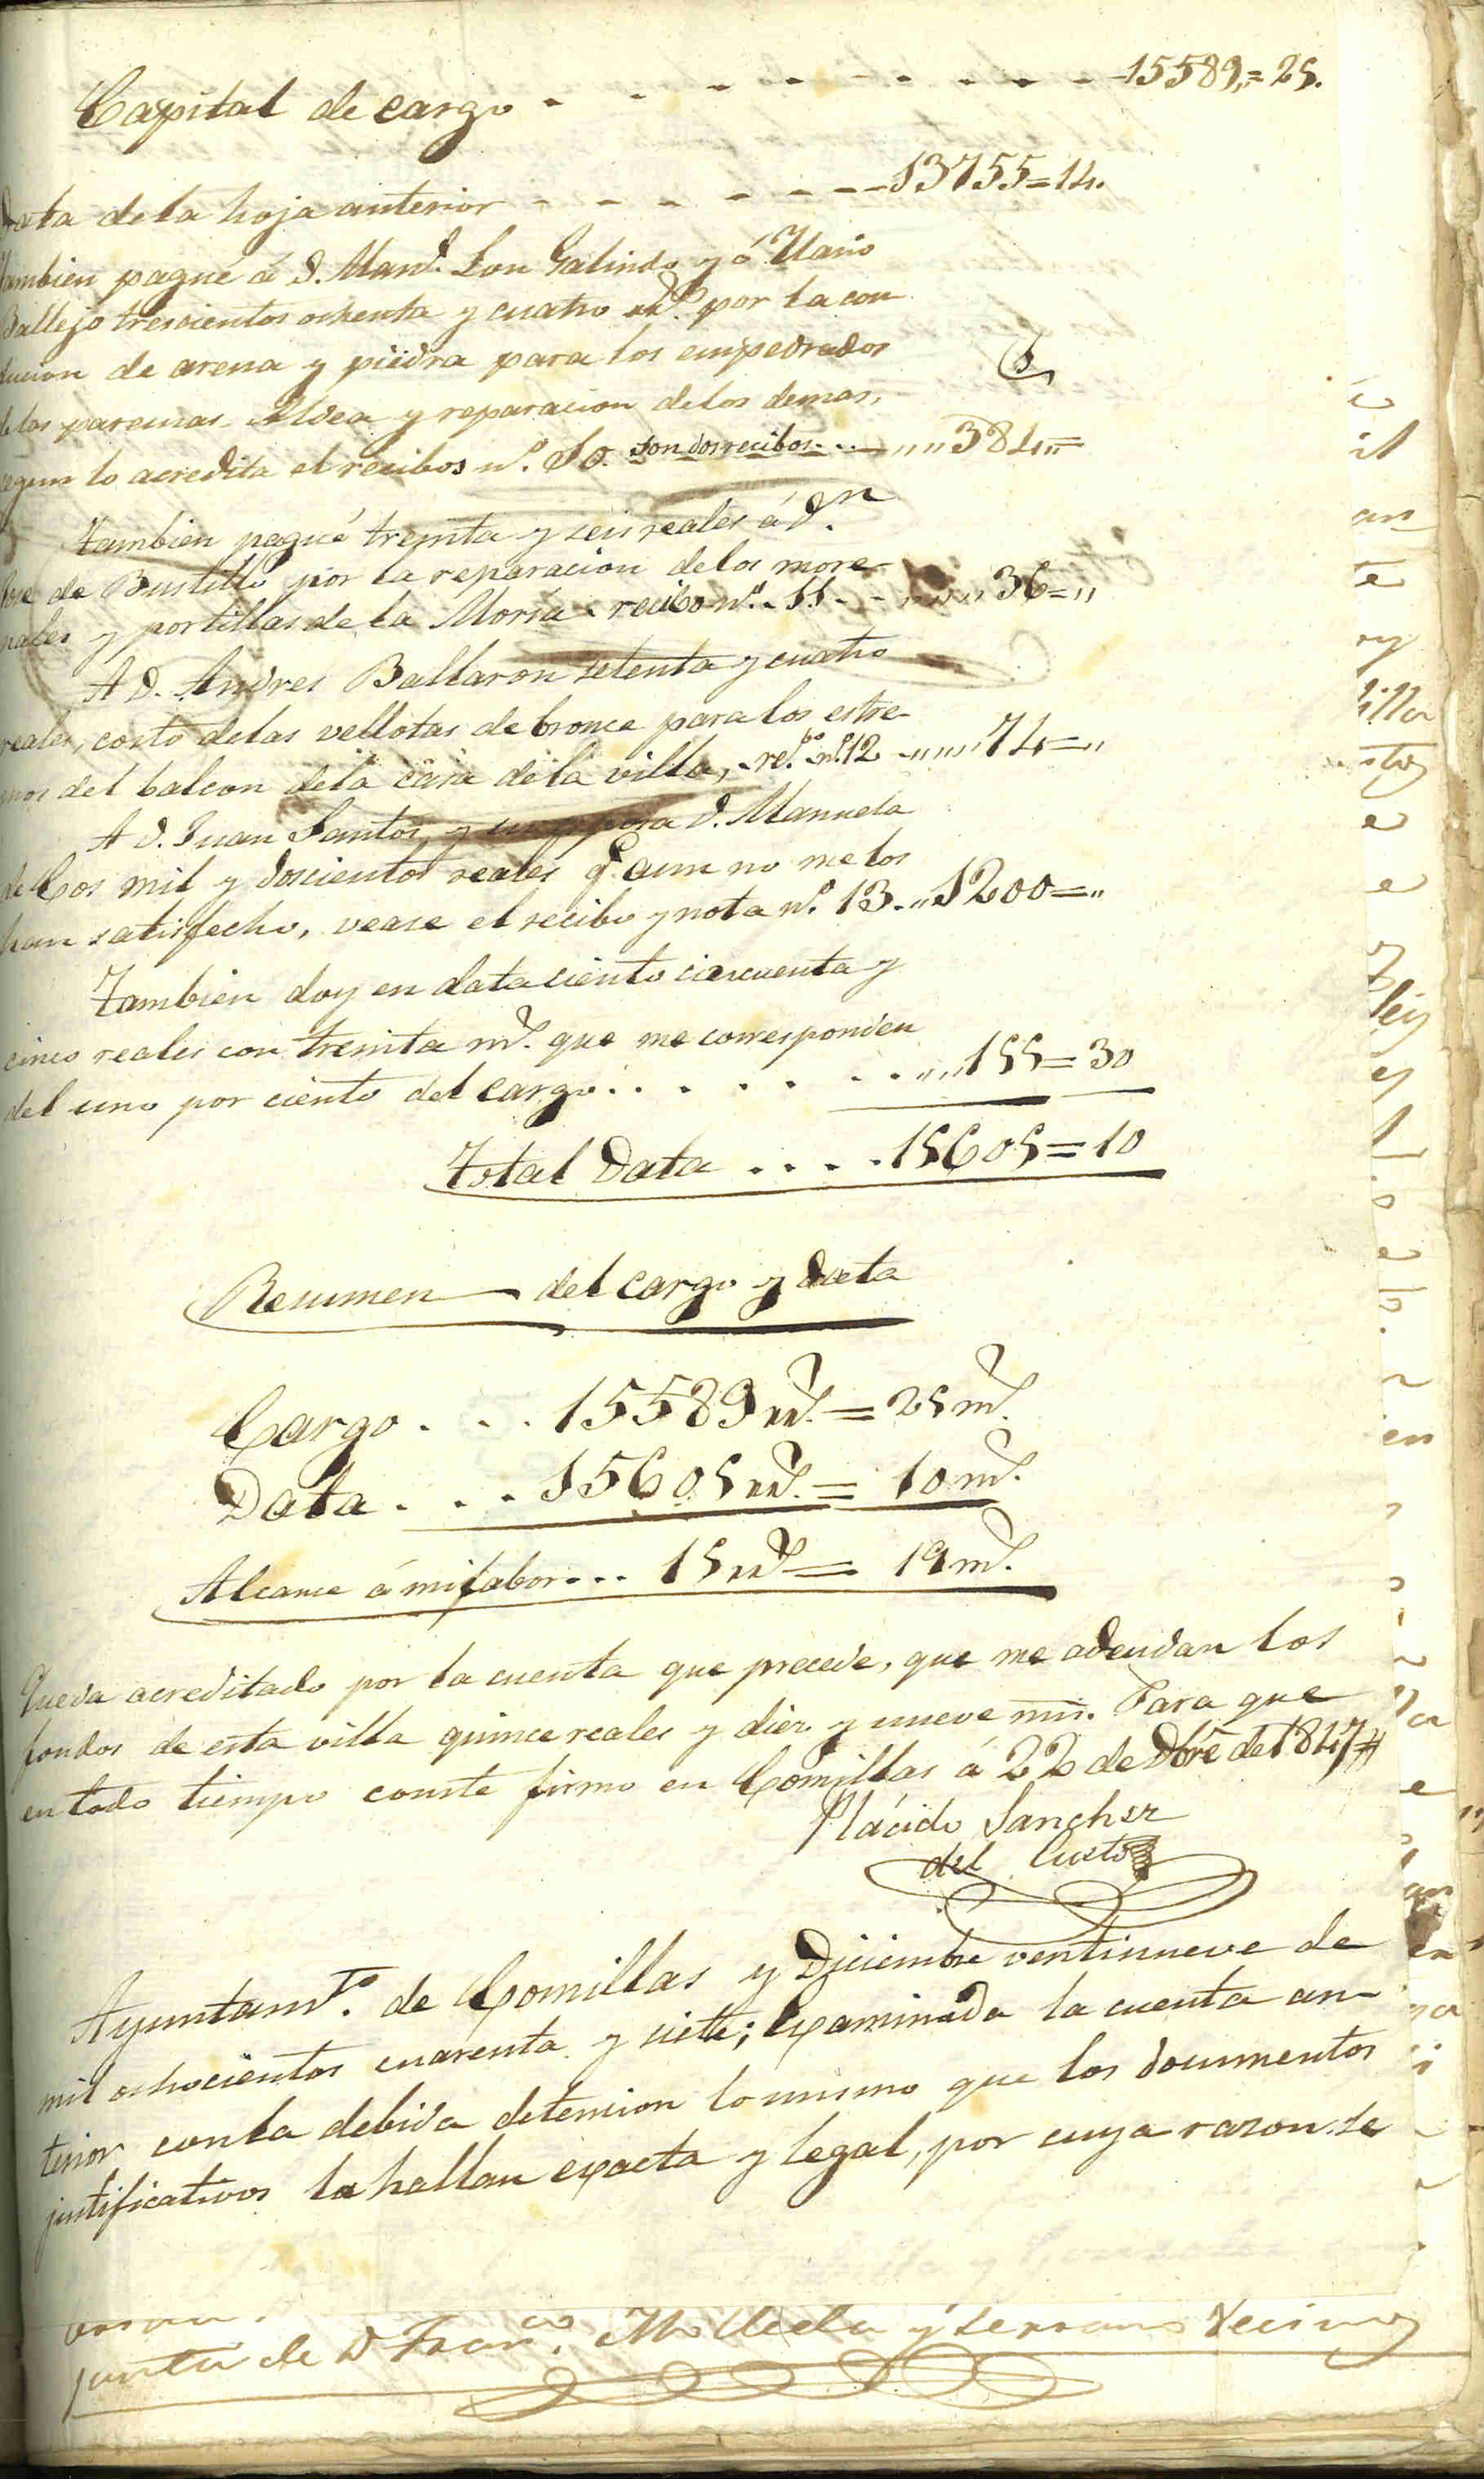 Capital de cargo - - - - - - - - - 15589,,=25.
Data de la hoja anterior - - - - - - - 13755=14.
Tambien pagué á D. Man.l Son Galindo y á
Ballejo trescientos ochenta y cuatro r.s por la con
ducion de arena y piedra para los empedrados
de las Aldea y reparacion de los demas,
segun lo acredita el recibos n.o 10. son dos recibos - - - ,,,,384,,=
Tambien pagué treinta y seis reales á D.n
Jose de Bustillo por la reparacion de los
y portillas de la Moría - recibo n.o 11 - - ,,,,,, 36=,,
A D. Andres Ballaron setenta y cuatro
reales, costo de las vellotas de bronce para los estre-
mos del balcon de la casa de la villa, - re.bo n.o 12 - ,,,,,,74=,,
A D. Juan Santos y su esposa D. Manuela
de Cos mil y doscientos reales q.e aun no me los
han satisfecho, vease el recibo y nota n.o 13 - ,,1200=,,
Tambien doy en data ciento cincuenta y
cinco reales con treinta m.s que me corresponden
del uno por ciento del cargo . . . . . . . ,,,,155=30
Total Data . . . . 15605=10
Resumen del cargo y data
Cargo . . . 15589 r.s = 25 m.s
Data . . . 15605 r.s = 10 m.s
Alcance á mi fabor . . . 15 r.s = 19 m.s
Queda acreditado por la cuenta que precede, que me adeudan los
fondos de esta villa quince reales y diez y nueve mrs. Para que
en todo tiempo conste firmo en Comillas á 22 de Dbre de 1847
Plácido Sanchez
del Cueto
Ayuntam.to de Comillas y Diciembre ventinueve de
mil ochocientos cuarenta y siete; Examinada la cuenta an-
terior con la debida detencion lo mismo que los documentos
justificativos la hallan exacta y legal, por cuya razon se
junta de D Fran.co y Serrano Vecino